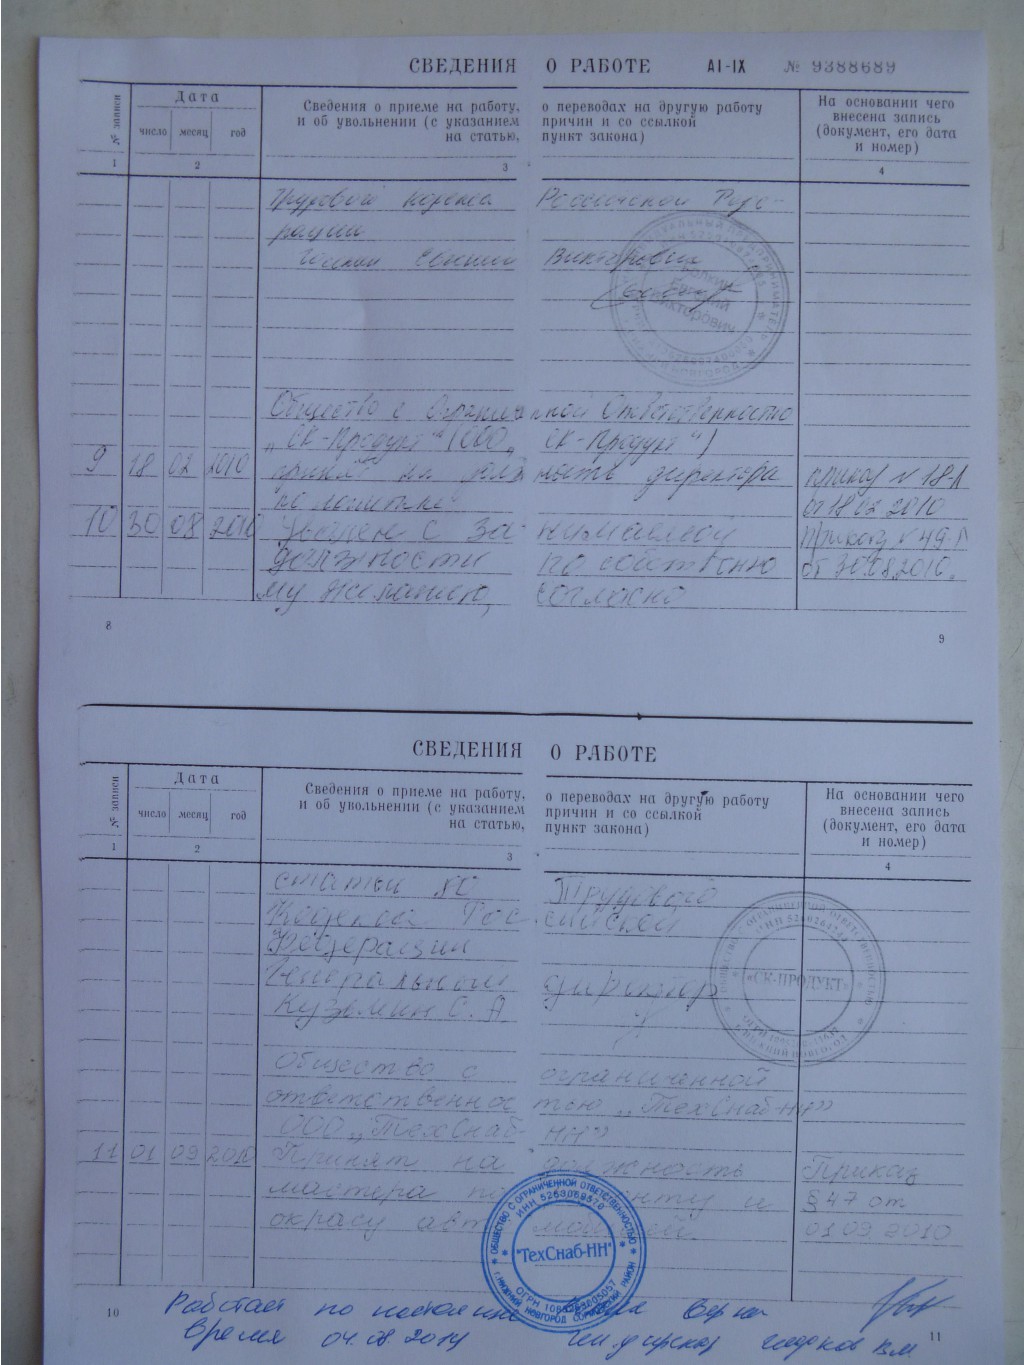 СВЕДЕНИЯ О РАБОТЕ АI-IX № 9388689
№ записи
Дата
число месяц год
Сведения о приеме на работу, о переводах на другую работу
и об увольнении (с указанием причин и со ссылкой
на статью, пункт закона)
На основании чего
внесена запись
(документ, его дата
и номер)
1 2 3 4
Трудового кодекса Российской Феде-
рации
Евгений Викторович
Общество с Ограниченной Ответственностью
„СК-Продукт" (ООО „СК-Продукт")
9 18 02 2010 принят на должность директора приказ № 18-Л
по логистике от 18 02 2010
10 30 08 2010 Уволен с За- нимаемой Приказ № 49-Л
должности по собственно от 30.08.2010.
му желанию, согласно
8 9
СВЕДЕНИЯ О РАБОТЕ
№ записи
Дата
число месяц год
Сведения о приеме на работу, о переводах на другую работу
и об увольнении (с указанием причин и со ссылкой
на статью, пункт закона)
На основании чего
внесена запись
(документ, его дата
и номер)
1 2 3 4
статьи 80 Трудового
Кодекса Рос сийской
Федерации
Генеральный директор
Кузьмин С. А
«СК-ПРОДУКТ»
Общество с ограниченной
ответственнос тью „ТехСнаб-НН"
ООО „ТехСнаб- НН"
11 01 09 2010 Принят на должность Приказ
мастера по § 47 от
окрасу 01 09 2010
ОБЩЕСТВО С ОГРАНИЧЕННОЙ ОТВЕТСТВЕННОСТЬЮ
ИНН 5263069570
"ТехСнаб-НН"
ОГРН 1085263605057
10 Работает по настоящее
время 04.08.2014
11